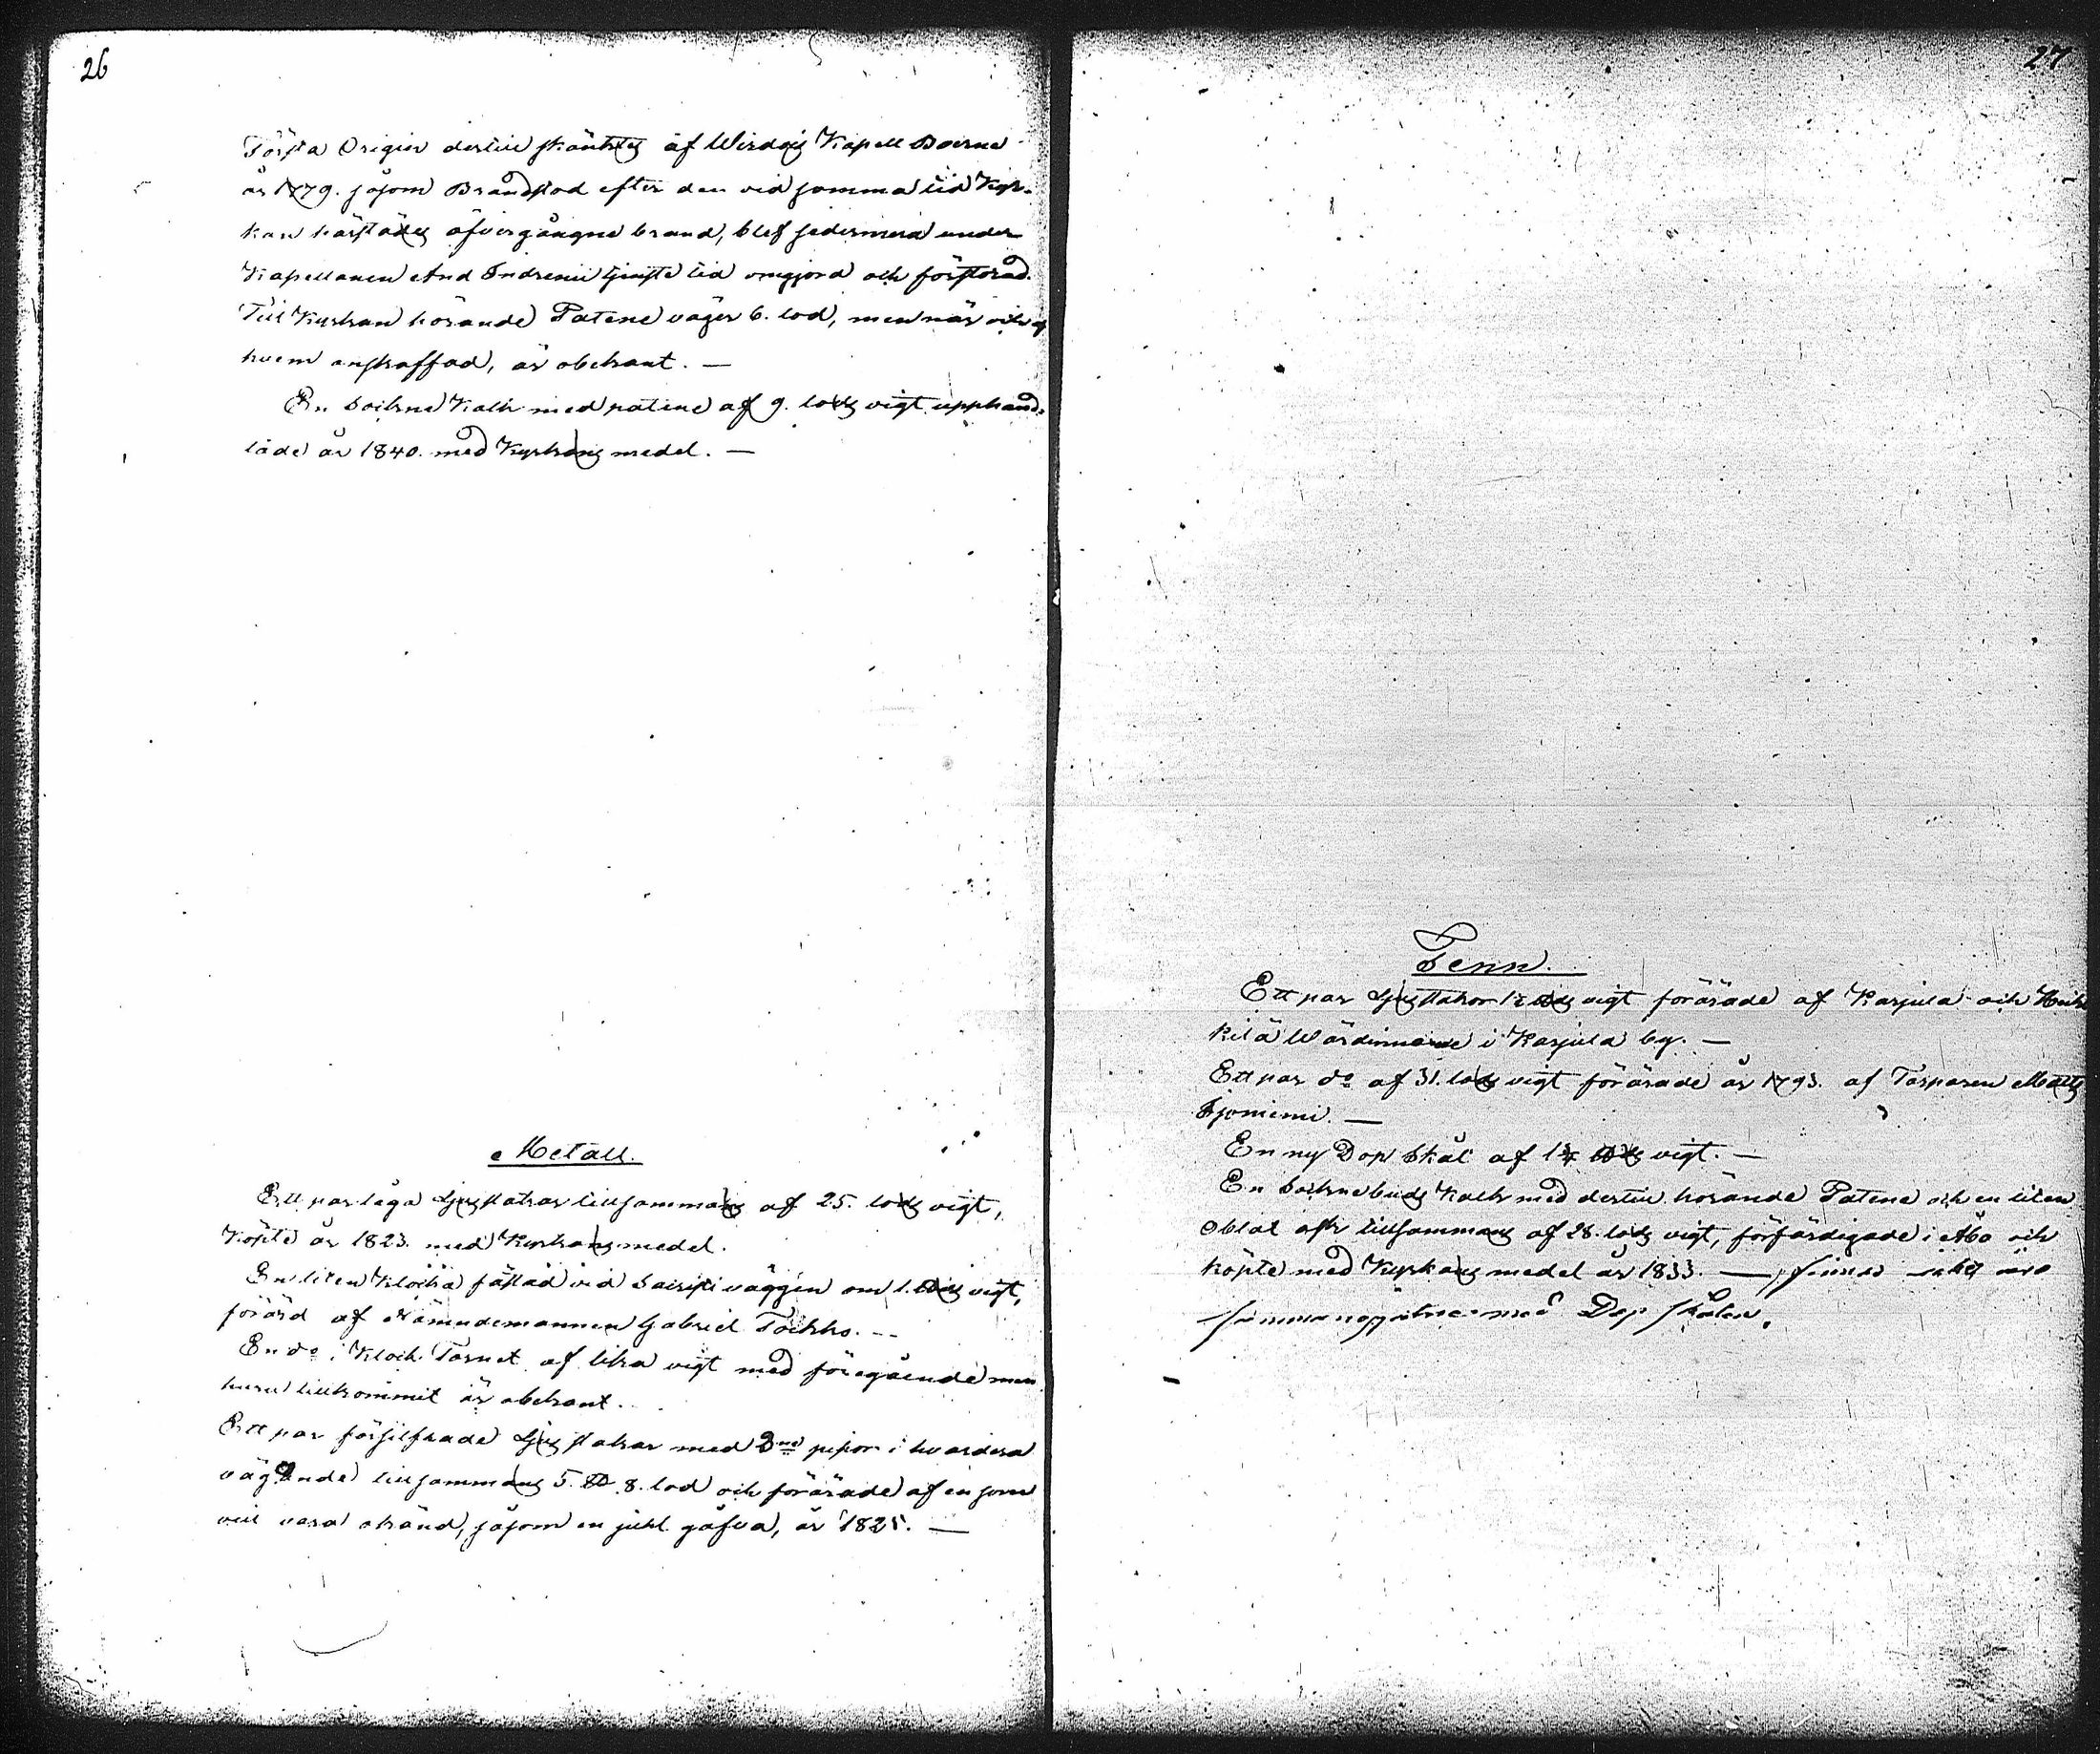 26
Första Origier dertill skänktes af Wirdois Kapell Boerne
år 1779. såsom Brandstod efter den vid samma tid Kyr-
kan härstädes öfvergångne brand, blef sedermera under
Kapellanen And Indrenii tjenste tid omgjord och förstorad.
Till Kyrkan hörande Patene väger 6. lod, men när och af
hvem anskaffad, är obekant. —
En Sockne Kalk med patene af 9. lods vigt upphand-
lade år 1840. med Kyrkans medel. —
Metall.
Ett par låga Ljusstakar tillsammans af 25. lods vigt,
Köpte år 1823. med Kyrkans medel.
En liten Klocka fästad vid Sacristi väggen om 1. ℔s vigt,
förärd af Nämndemannen Gabriel Toikko. —
En do i Klock Tornet af lika vigt med föregående men
huru tillkommit är obekant.
Ett par försilfrade Ljus stakar med 2ne pipor i hvardera
vägande tillsammans 5. ℔ 8. lod och förärade af en som
vill vara okänd, såsom en jul gåfva, år 1825. —
27
Tenn.
Ett par Ljusstakar ℔s vigt förärade af Karjula och
kilä Wärdinnorne i Karjula by. —
Ett par do af 31. lods vigt förärade år 1793. af Torparen Matts
Sjoniemi. —
En ny Dop Skål af 1¾ ℔s vigt. —
En Sockne buds Kalk med dertill hörande Patene och en liten
Oblat ask tillsammans af 28. lods vigt, förfärdigade i Åbo och
köpte med Kyrkans medel år 1833. — finnes
med Dop skålen.